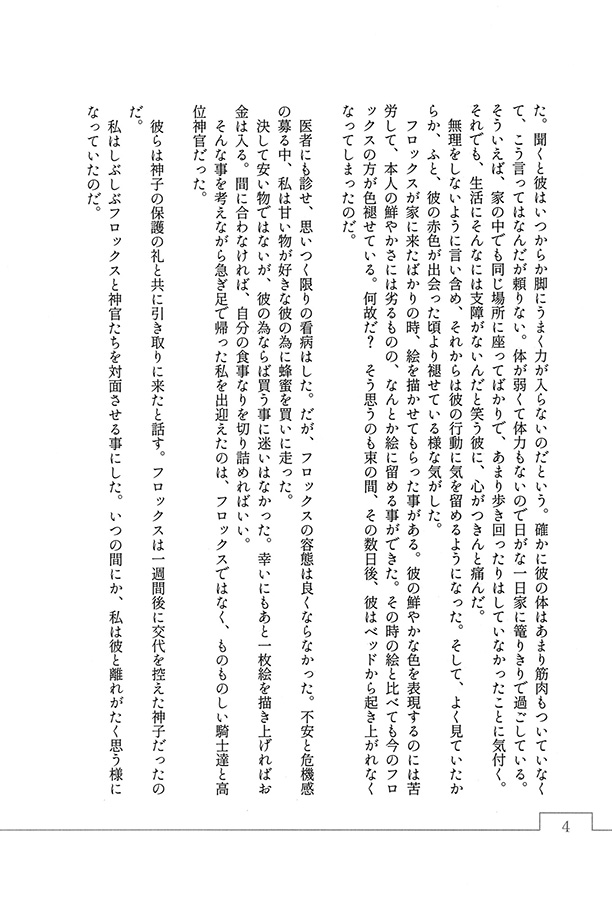 た。聞くと彼はいつからか脚にうまく力が入らないのだという。確かに彼の体はあまり筋肉もついていなく
て、こう言ってはなんだが頼りない。体が弱くて体力もないので日がな一日家に篭りきりで過ごしている。
そういえば、家の中でも同じ場所に座ってばかりで、あまり歩き回ったりはしていなかったことに気付く。
それでも、生活にそんなには支障がないんだと笑う彼に、心がつきんと痛んだ。
無理をしないように言い含め、それからは彼の行動に気を留めるようになった。そして、よく見ていたか
らか、ふと、彼の赤色が出会った頃より褪せている様な気がした。
フロックスが家に来たばかりの時、絵を描かせてもらった事がある。彼の鮮やかな色を表現するのには苦
労して、本人の鮮やかさには劣るものの、なんとか絵に留める事ができた。その時の絵と比べても今のフロ
ックスの方が色褪せている。何故だ?　そう思うのも束の間、その数日後、彼はベッドから起き上がれなく
なってしまったのだ。
医者にも診せ、思いつく限りの看病はした。だが、フロックスの容態は良くならなかった。不安と危機感
の募る中、私は甘い物が好きな彼の為に蜂蜜を買いに走った。
決して安い物ではないが、彼の為ならば買う事に迷いはなかった。幸いにもあと一枚絵を描き上げればお
金は入る。間に合わなければ、自分の食事なりを切り詰めればいい。
そんな事を考えながら急ぎ足で帰った私を出迎えたのは、フロックスではなく、ものものしい騎士達と高
位神官だった。
彼らは神子の保護の礼と共に引き取りに来たと話す。フロックスは一週間後に交代を控えた神子だったの
だ。
私はしぶしぶフロックスと神官たちを対面させる事にした。いつの間にか、私は彼と離れがたく思う様に
なっていたのだ。
4